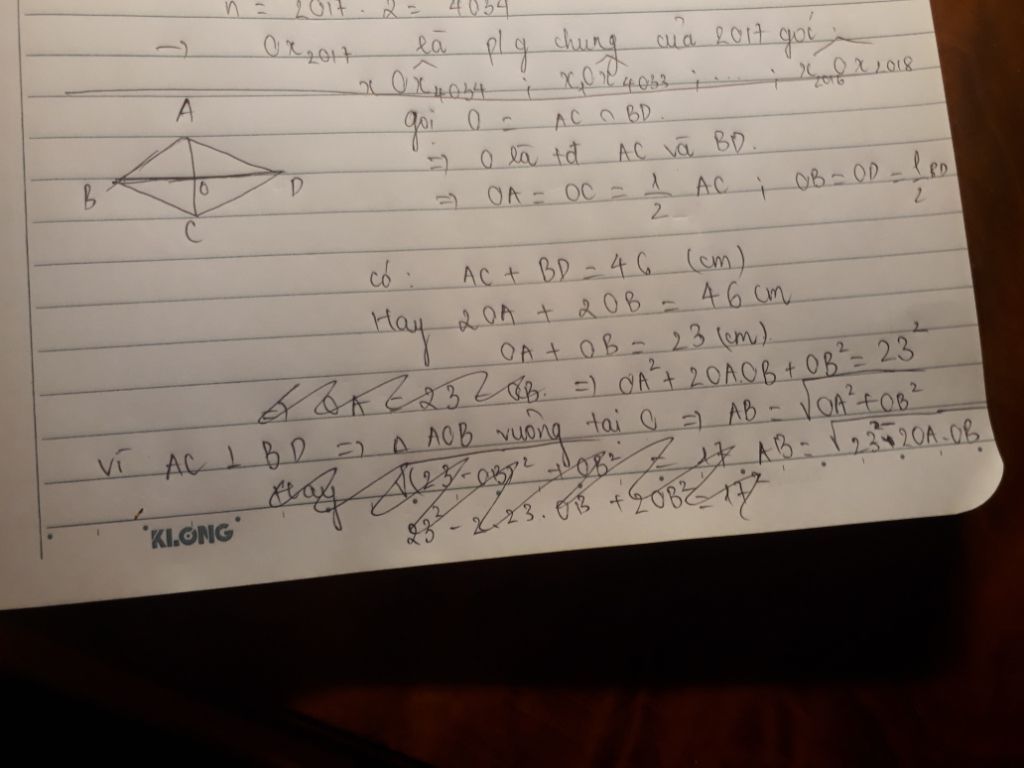 n = 2017 . 2 = 4034
→ Ox₂₀₁₇ là p/g chung của 2017 gói :
x₁Ox₄₀₃₄ ; x₂Ox₄₀₃₃ ; .... ; x₂₀₁₆Ox₂₀₁₈
A
B
O
D
C
gọi O = AC ∩ BD.
=> O là tđ AC và BD.
=> OA = OC = 1/2 AC ; OB = OD = 1/2 BD
có : AC + BD = 46 (cm)
Hay 2OA + 2OB = 46 cm
OA + OB = 23 (cm)
OA = 23 - OB. => OA² + 2OA.OB + OB² = 23²
Vì AC ⊥ BD => Δ AOB vuông tại O => AB = √OA² + OB²
Hay √(23 - OB)² + OB² = 17 AB = √23² - 2OA.OB
23² - 2.23.OB + 2OB² = 17²
KLONG